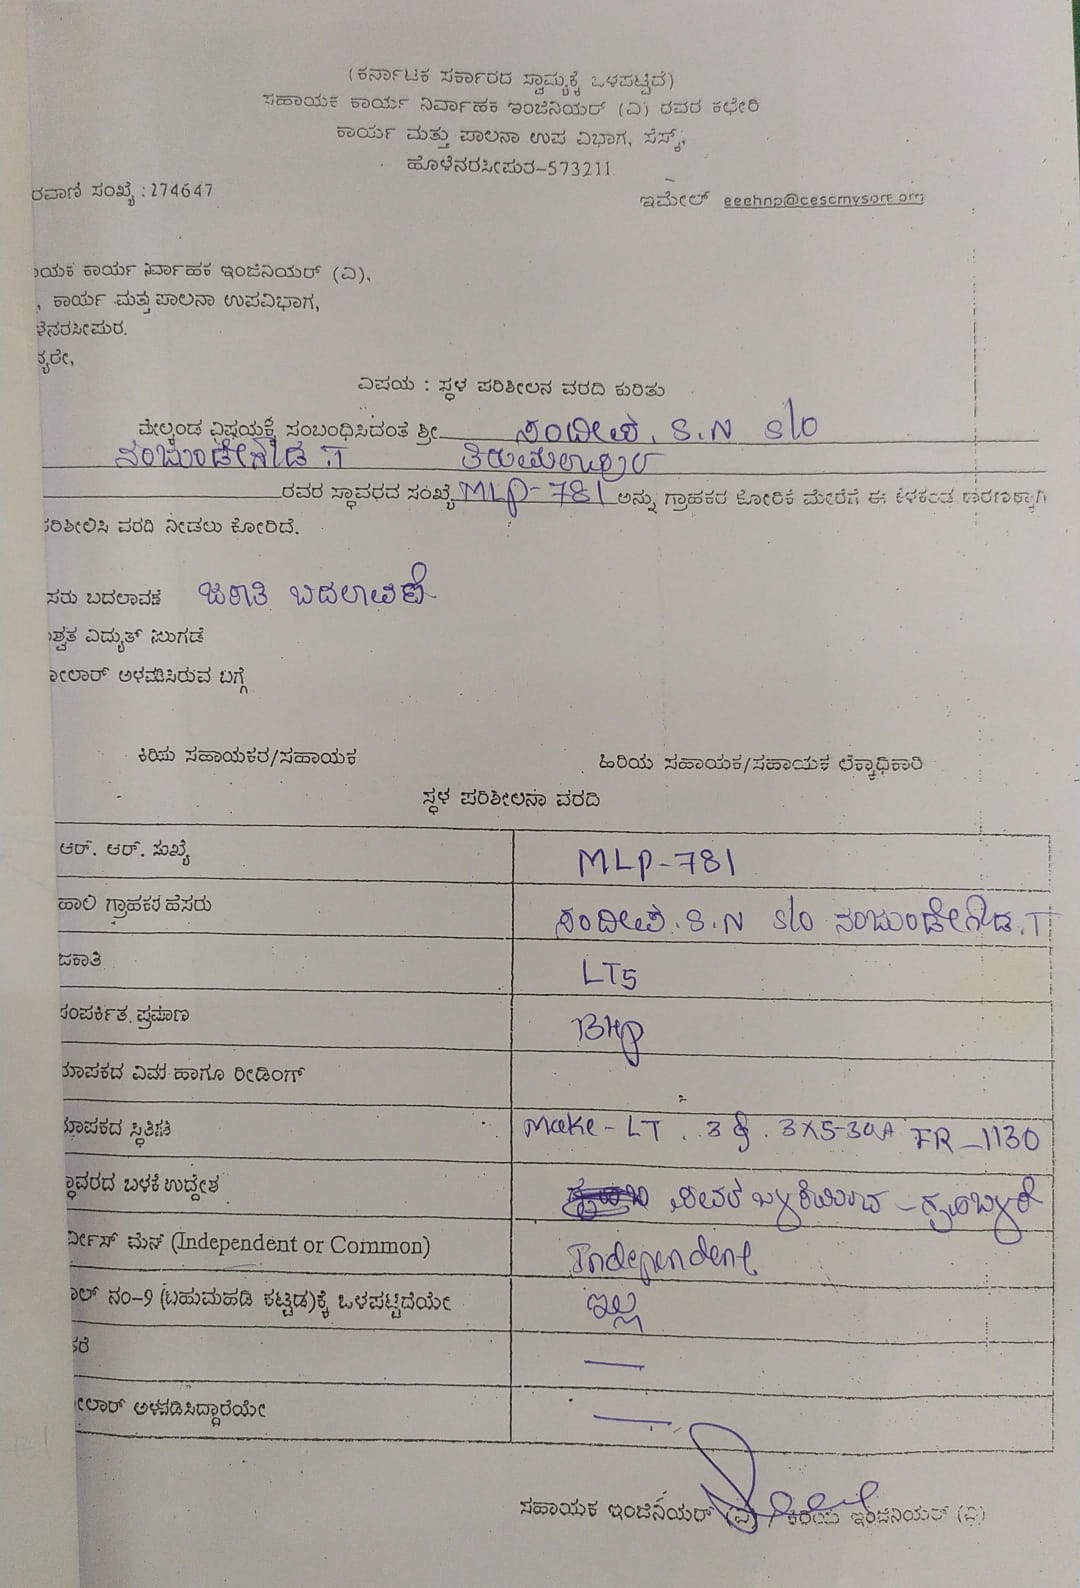 (ಕರ್ನಾಟಕ ಸರ್ಕಾರದ ಸ್ವಾಮ್ಯಕ್ಕೆ ಒಳಪಟ್ಟಿದೆ)
ಸಹಾಯಕ ಕಾರ್ಯ ನಿರ್ವಾಹಕ ಇಂಜಿನಿಯರ್ (ವಿ) ರವರ ಕಛೇರಿ
ಕಾರ್ಯ ಮತ್ತು ಪಾಲನಾ ಉಪ ವಿಭಾಗ, ಸೆಸ್ಕ್,
ಹೊಳೆನರಸೀಪುರ-573211
ರವಾಣಿ ಸಂಖ್ಯೆ :274647 ಇಮೇಲ್ eeehnp@cescmysore.org
ಾಯಕ ಕಾರ್ಯ ನಿರ್ವಾಹಕ ಇಂಜಿನಿಯರ್ (ವಿ),
, ಕಾರ್ಯ ಮತ್ತು ಪಾಲನಾ ಉಪವಿಭಾಗ,
ಳೆನರಸೀಪುರ.
ನ್ಯರೇ,
ವಿಷಯ : ಸ್ಥಳ ಪರಿಶೀಲನ ವರದಿ ಕುರಿತು
ಮೇಲ್ಕಂಡ ವಿಷಯಕ್ಕೆ ಸಂಬಂಧಿಸಿದಂತೆ ಶ್ರೀ ಸಂದೀಪ. S.N S/o
ನಂಜುಂಡೇಗೌಡ .T
ರವರ ಸ್ಥಾವರದ ಸಂಖ್ಯೆ MLP-781 ಅನ್ನು ಗ್ರಾಹಕರ ಕೋರಿಕೆ ಮೇರೆಗೆ ಈ ಕೆಳಕಂಡ ಕಾರಣಕ್ಕಾಗಿ
ಪರಿಶೀಲಿಸಿ ವರದಿ ನೀಡಲು ಕೋರಿದೆ.
ಸರು ಬದಲಾವಣೆ ಜಕಾತಿ ಬದಲಾವಣೆ
ಶ್ವತ ವಿದ್ಯುತ್ ನಿಲುಗಡೆ
ೋಲಾರ್ ಅಳವಡಿಸಿರುವ ಬಗ್ಗೆ
ಕಿರಿಯ ಸಹಾಯಕರ/ಸಹಾಯಕ ಹಿರಿಯ ಸಹಾಯಕ/ಸಹಾಯಕ ಲೆಕ್ಕಾಧಿಕಾರಿ
ಸ್ಥಳ ಪರಿಶೀಲನಾ ವರದಿ
ಆರ್. ಆರ್. ಸಂಖ್ಯೆ MLP-781
ಹಾಲಿ ಗ್ರಾಹಕರ ಹೆಸರು ಸಂದೀಪ. S.N S/o ನಂಜುಂಡೇಗೌಡ.T
ಜಕಾತಿ LT5
ಸಂಪರ್ಕಿತ ಪ್ರಮಾಣ
ಮಾಪಕದ ವಿವರ ಹಾಗೂ ರೀಡಿಂಗ್
ಮಾಪಕದ ಸ್ಥಿತಿಗತಿ Make-LT . 3ϕ . 3X5-30A FR-1130
ಸ್ಥಾವರದ ಬಳಕೆ ಉದ್ದೇಶ
ರ್ವೀಸ್ ಮೆನ್ (Independent or Common) Independent
ೂಲ್ ನಂ-9 (ಬಹುಮಹಡಿ ಕಟ್ಟಡ)ಕ್ಕೆ ಒಳಪಟ್ಟಿದೆಯೇ ಇಲ್ಲ
ತರೆ —
ೋಲಾರ್ ಅಳವಡಿಸಿದ್ದಾರೆಯೇ —
ಸಹಾಯಕ ಇಂಜಿನಿಯರ್ (ವಿ) / ಕಿರಿಯ ಇಂಜಿನಿಯರ್ (ವಿ)